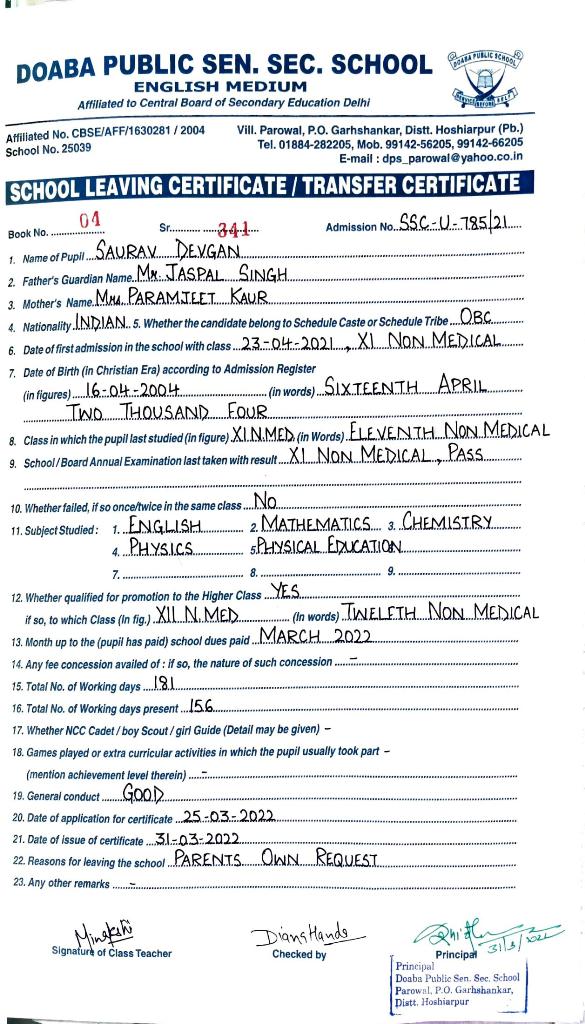 DOABA PUBLIC SEN. SEC. SCHOOL
ENGLISH MEDIUM
Affiliated to Central Board of Secondary Education Delhi
DOABA PUBLIC SCHOOL
SERVICE BEFORE SELF
Affiliated No. CBSE/AFF/1630281 / 2004
School No. 25039
Vill. Parowal, P.O. Garhshankar, Distt. Hoshiarpur (Pb.)
Tel. 01884-282205, Mob. 99142-56205, 99142-66205
E-mail : dps_parowal@yahoo.co.in
SCHOOL LEAVING CERTIFICATE / TRANSFER CERTIFICATE
Book No. 04 Sr. 341 Admission No. SSC-U-785/21
1. Name of Pupil SAURAV DEVGAN
2. Father's Guardian Name Mr. JASPAL SINGH
3. Mother's Name Mrs. PARAMJEET KAUR
4. Nationality INDIAN 5. Whether the candidate belong to Schedule Caste or Schedule Tribe OBC
6. Date of first admission in the school with class 23-04-2021, XI NON MEDICAL
7. Date of Birth (in Christian Era) according to Admission Register
(in figures) 16-04-2004 (in words) SIXTEENTH APRIL
TWO THOUSAND FOUR
8. Class in which the pupil last studied (in figure) XI N.MED (in Words) ELEVENTH NON MEDICAL
9. School / Board Annual Examination last taken with result XI NON MEDICAL, PASS
10. Whether failed, if so once/twice in the same class NO
11. Subject Studied : 1. ENGLISH 2. MATHEMATICS 3. CHEMISTRY
4. PHYSICS 5. PHYSICAL EDUCATION
7. 8. 9.
12. Whether qualified for promotion to the Higher Class YES
if so, to which Class (In fig.) XII N.MED (In words) TWELETH NON MEDICAL
13. Month up to the (pupil has paid) school dues paid MARCH 2022
14. Any fee concession availed of : if so, the nature of such concession –
15. Total No. of Working days 181
16. Total No. of Working days present 156
17. Whether NCC Cadet / boy Scout / girl Guide (Detail may be given) –
18. Games played or extra curricular activities in which the pupil usually took part –
(mention achievement level therein) –
19. General conduct GOOD
20. Date of application for certificate 25-03-2022
21. Date of issue of certificate 31-03-2022
22. Reasons for leaving the school PARENTS OWN REQUEST
23. Any other remarks –
Minakshi
Signature of Class Teacher Checked by Principal 31/3/2022
Principal
Doaba Public Sen. Sec. School
Parowal, P.O. Garhshankar,
Distt. Hoshiarpur